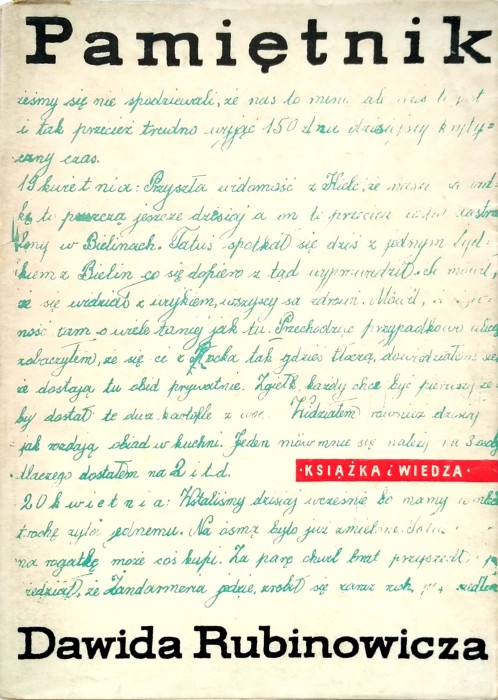 Pamiętnik
ieśmy się nie spodziewali, że nas to minie ale
i tak przecież trudno wyjąć 150 z nu dzisiejszy kryty=
czny czas.
19 kwietnia: Przyszła widomość z Kielc, że
kę to puszczą jeszcze dzisiaj a on ti przecież został
lony w Bielinach. Tatuś spotkał się dziś z jednym
kiem z Bielin co się dopiero z tąd wyprowadził.
że się widział z wujkiem, wszyscy sa zdrowi. Mówił,
ność tam o wiele taniej jak tu. Przechodząc przypadkowo ulicą
zobaczyłem, że się ci z Płocka tak gdzieś tłoczą, dowiedziałem się
że dostają tu obid prywatnie. Zgiełk, każdy chce być pierwszy że=
by dostał te dwa kartofle z Widziałem również dzisiaj
jak rozdają obiad w kuchni. Jeden mów mnie się należy na 3 osoby
dlaczego dostałem na 2 i t d.
·KSIĄŻKA i WIEDZA·
20 kwietnia: Wstaliśmy dzisiaj wcześnie bo mamy
trochę żyta jednemu. Na ósmą było już zmielone.
na rogatkę może coś kupi. Za parę chwil brat przyszedł i
iedział, że Żandarmeria jedzie, zrobił się zaraz ruch,
Dawida Rubinowicza